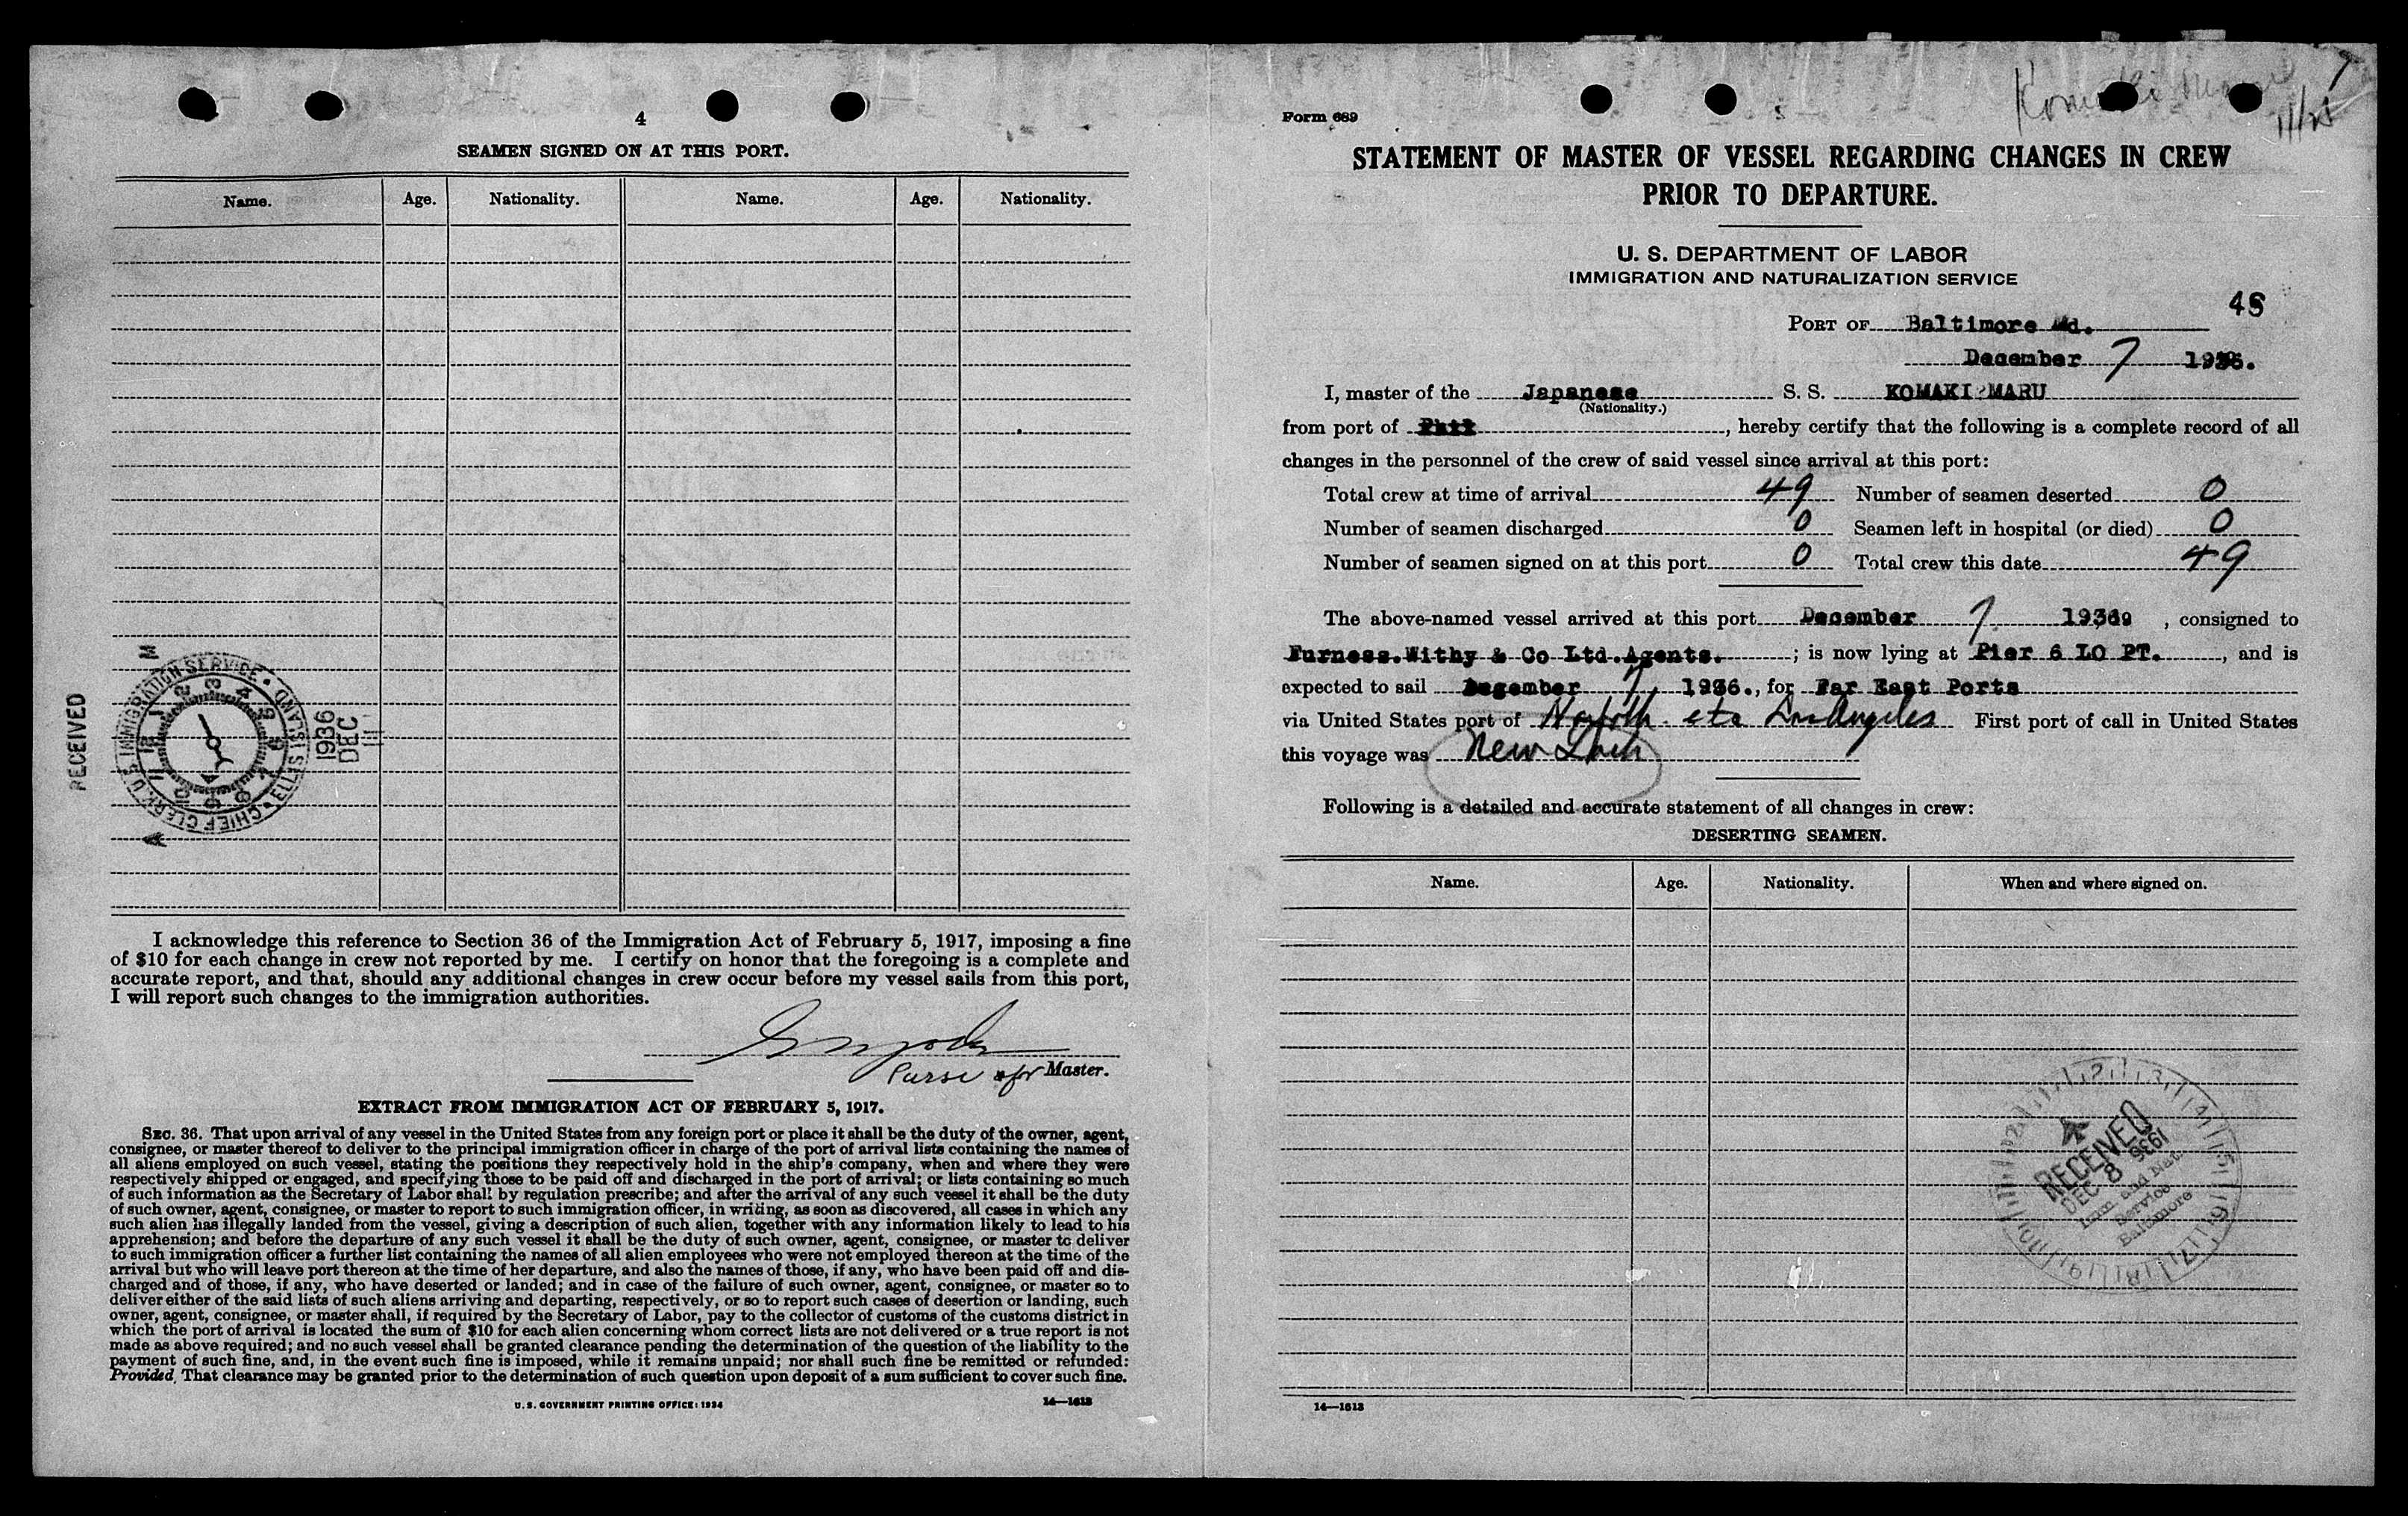 4
SEAMEN SIGNED ON AT THIS PORT.
Name. Age. Nationality. Name. Age. Nationality.
RECEIVED
M
CHIEF CLERK, U.S. IMMIGRATION SERVICE • ELLIS ISLAND •
1936
DEC
A
I acknowledge this reference to Section 36 of the Immigration Act of February 5, 1917, imposing a fine
of $10 for each change in crew not reported by me. I certify on honor that the foregoing is a complete and
accurate report, and that, should any additional changes in crew occur before my vessel sails from this port,
I will report such changes to the immigration authorities.
Purser for Master.
EXTRACT FROM IMMIGRATION ACT OF FEBRUARY 5, 1917.
SEC. 36. That upon arrival of any vessel in the United States from any foreign port or place it shall be the duty of the owner, agent,
consignee, or master thereof to deliver to the principal immigration officer in charge of the port of arrival lists containing the names of
all aliens employed on such vessel, stating the positions they respectively hold in the ship's company, when and where they were
respectively shipped or engaged, and specifying those to be paid off and discharged in the port of arrival; or lists containing so much
of such information as the Secretary of Labor shall by regulation prescribe; and after the arrival of any such vessel it shall be the duty
of such owner, agent, consignee, or master to report to such immigration officer, in writing, as soon as discovered, all cases in which any
such alien has illegally landed from the vessel, giving a description of such alien, together with any information likely to lead to his
apprehension; and before the departure of any such vessel it shall be the duty of such owner, agent, consignee, or master to deliver
to such immigration officer a further list containing the names of all alien employees who were not employed thereon at the time of the
arrival but who will leave port thereon at the time of her departure, and also the names of those, if any, who have been paid off and dis-
charged and of those, if any, who have deserted or landed; and in case of the failure of such owner, agent, consignee, or master so to
deliver either of the said lists of such aliens arriving and departing, respectively, or so to report such cases of desertion or landing, such
owner, agent, consignee, or master shall, if required by the Secretary of Labor, pay to the collector of customs of the customs district in
which the port of arrival is located the sum of $10 for each alien concerning whom correct lists are not delivered or a true report is not
made as above required; and no such vessel shall be granted clearance pending the determination of the question of the liability to the
payment of such fine, and, in the event such fine is imposed, while it remains unpaid; nor shall such fine be remitted or refunded:
Provided, That clearance may be granted prior to the determination of such question upon deposit of a sum sufficient to cover such fine.
U. S. GOVERNMENT PRINTING OFFICE: 1934 14—1613
Komaki Maru
Form 689
STATEMENT OF MASTER OF VESSEL REGARDING CHANGES IN CREW
PRIOR TO DEPARTURE.
U. S. DEPARTMENT OF LABOR
IMMIGRATION AND NATURALIZATION SERVICE
PORT OF Baltimore Md.
December 7 1936.
I, master of the Japanese S. S. KOMAKI MARU
(Nationality.)
from port of , hereby certify that the following is a complete record of all
changes in the personnel of the crew of said vessel since arrival at this port:
Total crew at time of arrival 49 Number of seamen deserted 0
Number of seamen discharged 0 Seamen left in hospital (or died) 0
Number of seamen signed on at this port 0 Total crew this date 49
The above-named vessel arrived at this port December 7 1936 , consigned to
Furness.Withy & Co Ltd.Agents. ; is now lying at Pier 6 LO PT. , and is
expected to sail December 7, 1936., for Far East Ports
via United States port of Norfolk etc Los Angeles First port of call in United States
this voyage was New York
Following is a detailed and accurate statement of all changes in crew:
DESERTING SEAMEN.
Name. Age. Nationality. When and where signed on.
RECEIVED
DEC 8 1936
Imm. and Nat.
Service
Baltimore
14—1613